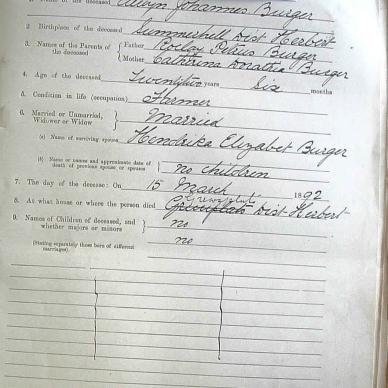 1. Name of the deceased Alwyn Johannes Burger
2. Birthplace of the deceased Summerhill Dist Herbert
3. Names of the Parents of the deceased { Father Roelay Petrus Burger
Mother Catherina Dorathea Burger
4. Age of the deceased Twentytwo years Six months
5. Condition in life (occupation) Farmer
6. Married or Unmarried, Widower or Widow } Married
(a) Name of surviving spouse Hendrika Elizabet Burger
(b) Name or names and approximate date of death of previous spouse or spouses } no children
7. The day of the decease: On 15 March 1892
8. At what house or where the person died Dist Herbert
9. Names of Children of deceased, and whether majors or minors } no
(Stating separately those born of different marriages). no